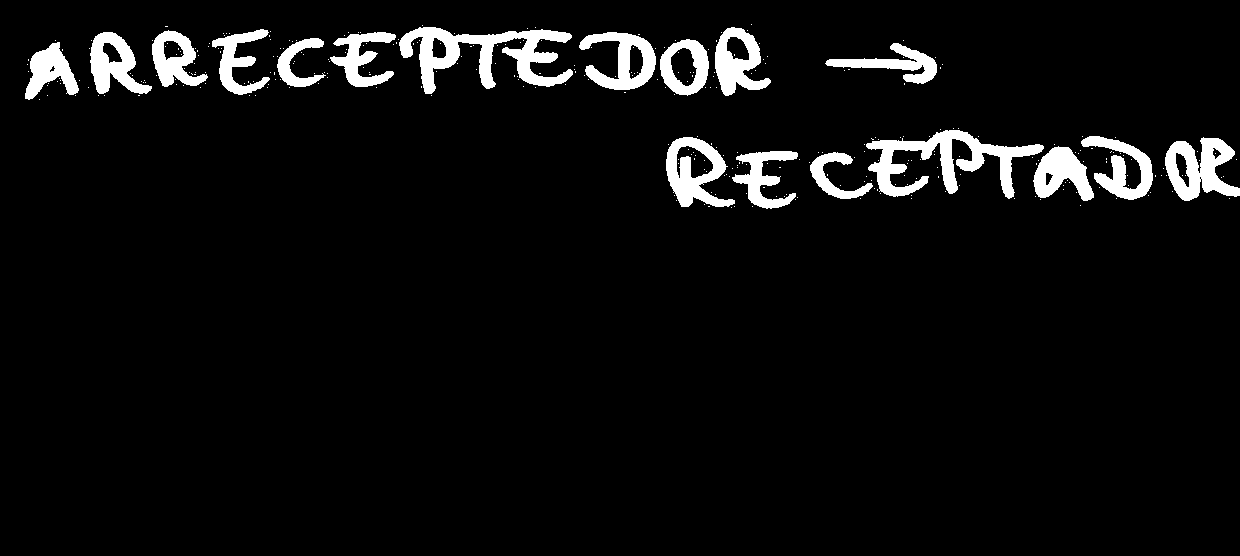 ARRECEPTEDOR →
RECEPTADOR